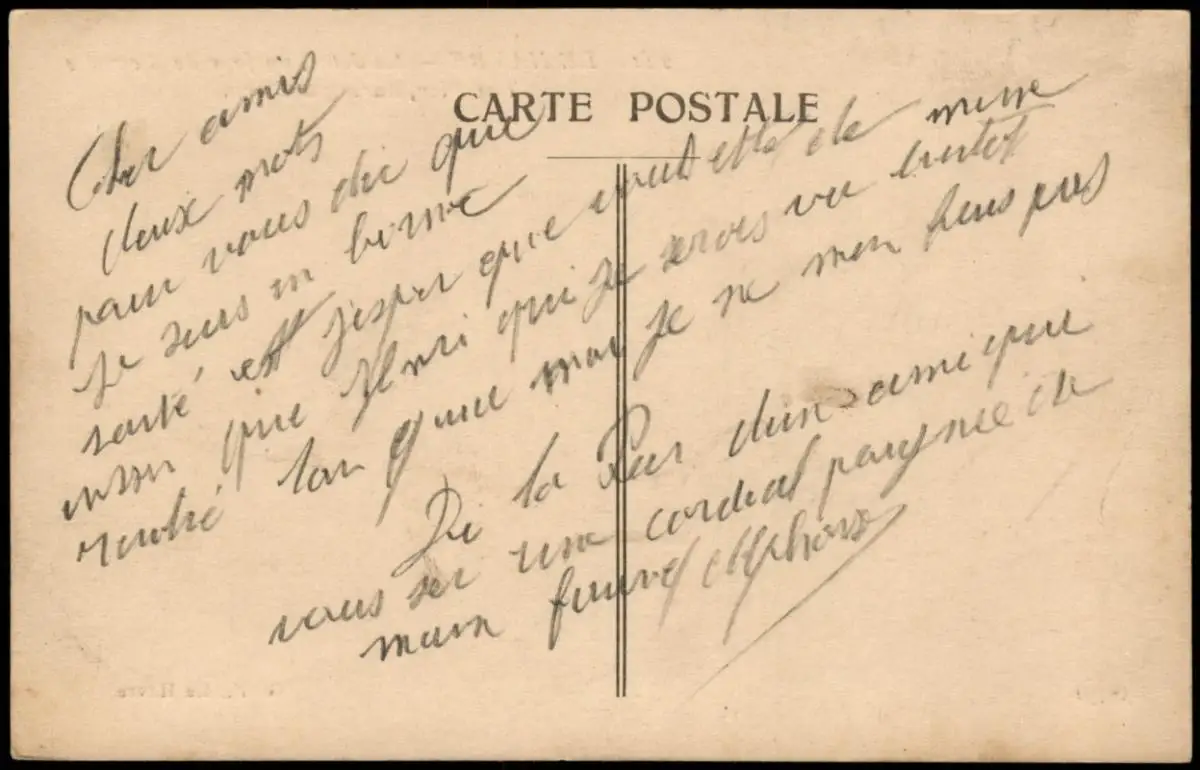 CARTE POSTALE
Cher amis
deux mots
pour vous dir que
je suis en bonne
santé est j'esper que vous ette de meme
insin que Henri qui je serois va bientot
rentré tan qua moi je ne men fais pas
Je la Par dun ami qui
vous ser une cordial poignee de
main Alphonse